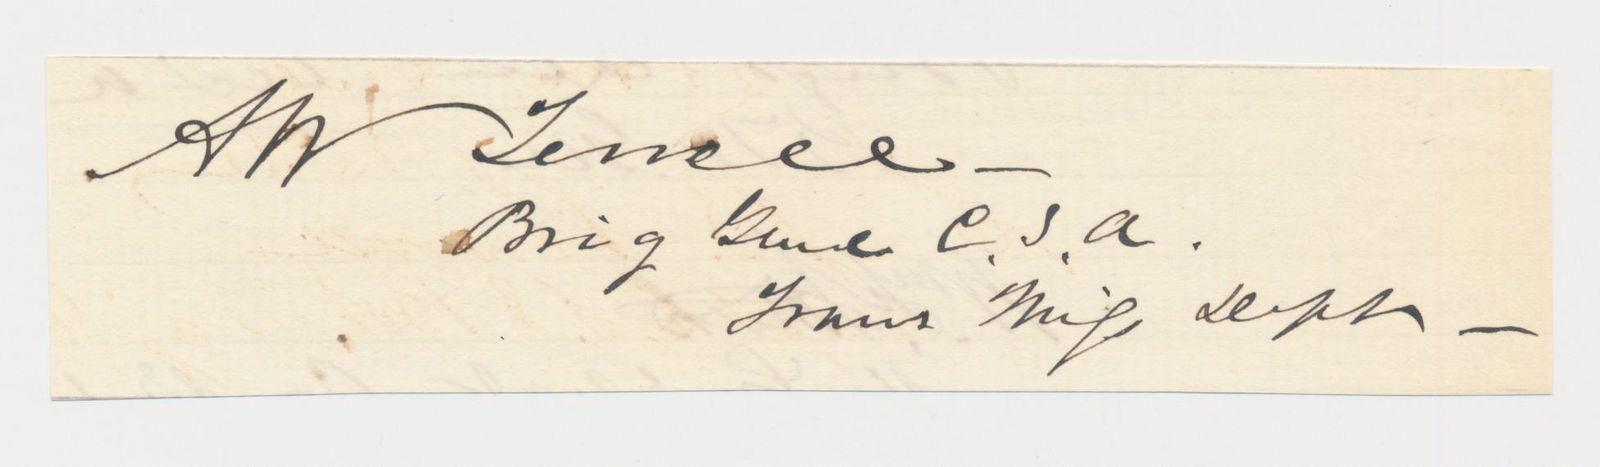 AW Terrell —
Brig Genl C.S.A.
Trans Mis Dept —